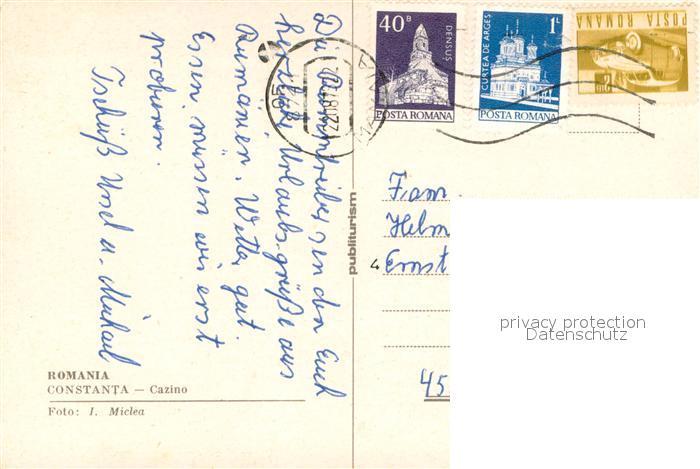 Die Daumentreiber senden Euch
herzliche Urlaubsgrüße aus
Rumänien. Wetter gut.
Essen müssen wir erst
probieren.
Tschüß Ursel u. Michael
ROMANIA
CONSTANȚA — Cazino
Foto: I. Miclea
publiturism
40 B
DENSUS
POSTA ROMANA
1 L
CURTEA DE ARGES
POSTA ROMANA
POSTA ROMANA
2 LEI
Fam.
Helm
Ernst
45
privacy protection
Datenschutz